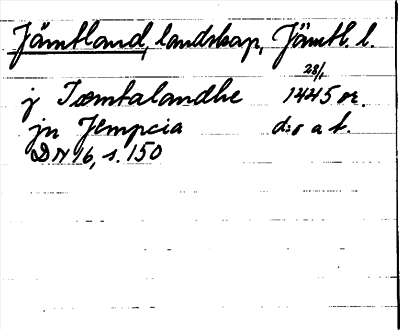 Jämtland, landskap, Jämtl. l.
28/1
j Iæmtalandhe 1445 or.
jn Jempcia d:o a k.
DN 16, s. 150